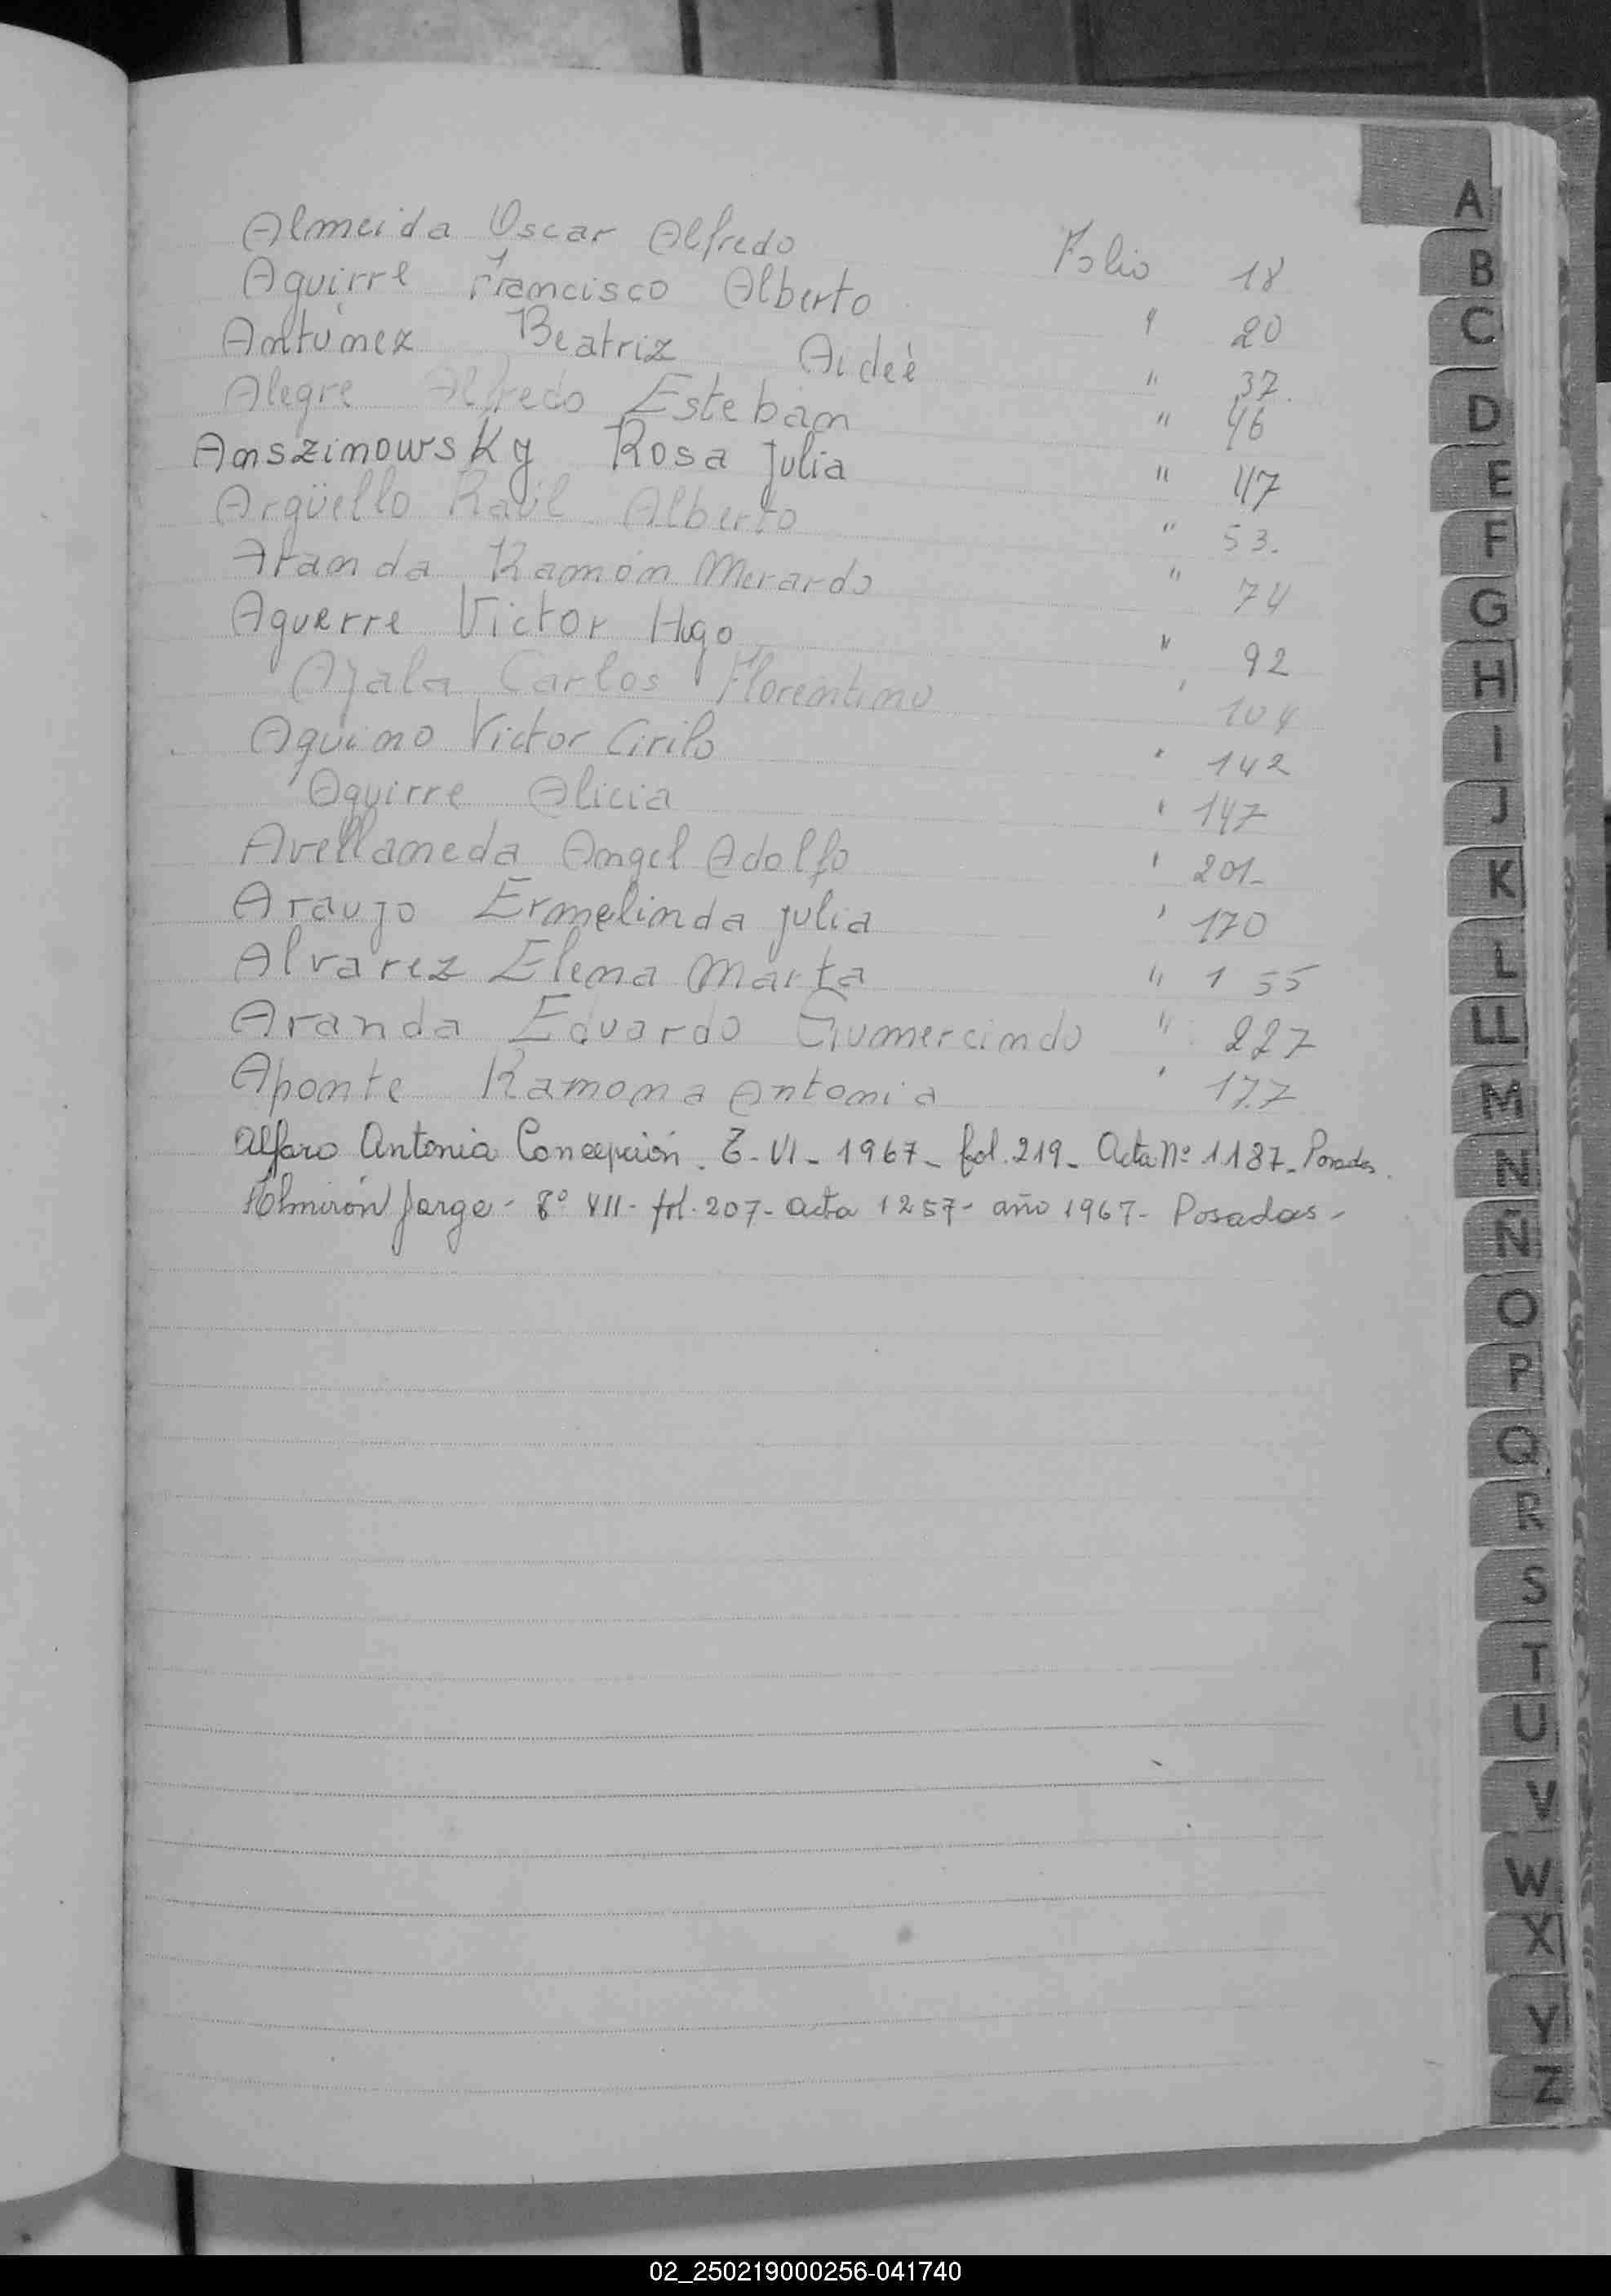 Almeida Oscar Alfredo Folio 18
Aguirre Francisco Alberto " 20
Antúnez Beatriz Aideé " 37.
Alegre Alfredo Esteban " 46
Anszinowsky Rosa Julia " 47
Argüello Raúl Alberto " 53.
Aranda Ramón Merardo " 74
Aguerre Victor Hugo " 92
Ayala Carlos Florentino " 104
Aquino Victor Cirilo " 142
Aguirre Alicia " 147
Avellaneda Angel Adolfo " 201-
Araujo Ermelinda Julia " 170
Alvarez Elena Marta " 155
Aranda Eduardo Gumercindo " 227
Aponte Ramona Antonia " 177
Alfaro Antonia Concepción. T- VI- 1967- fol. 219- Acta Nº 1187- Posadas.
Almirón Jorge- Tº VII- fol. 207- acta 1257- año 1967- Posadas-
A
B
C
D
E
F
G
H
I
J
K
L
LL
M
N
Ñ
O
P
Q
R
S
T
U
V
W
X
Y
Z
02_250219000256-041740